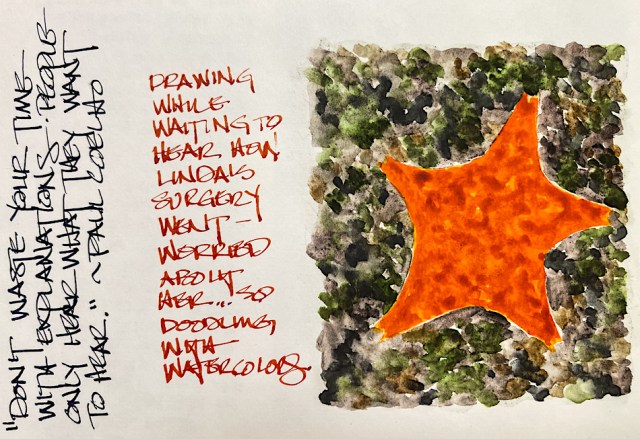 "DON'T WASTE YOUR TIME
WITH EXPLANATIONS. PEOPLE
ONLY HEAR WHAT THEY WANT
TO HEAR." ~ PAUL COELHO
DRAWING
WHILE
WAITING TO
HEAR HOW
LINDA'S
SURGERY
WENT –
WORRIED
ABOUT
HER... SO
DOODLING
WITH
WATERCOLORS.